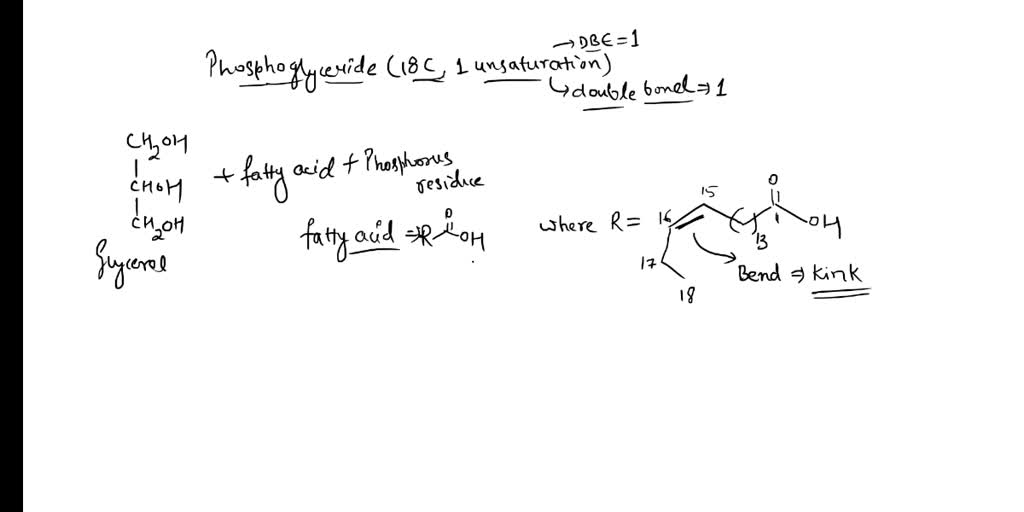 →DBE=1
Phosphoglyceride (18C, 1 unsaturation)
↳double bond⇒1
CH2OH
CHOH
CH2OH
Glycerol
+ fatty acid + Phosphorus
residue
fatty acid ⇒ R
O
OH
where R =
16
15
17
18
O
1
13
OH
Bend ⇒ Kink